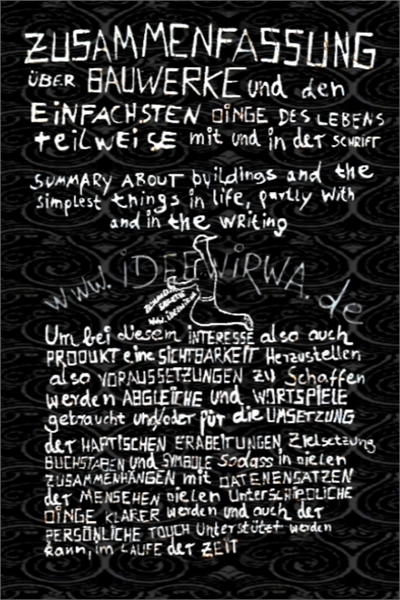 ZUSAMMENFASSUNG
ÜBER BAUWERKE und den
EINFACHSTEN DINGE DES LEBENS
teilweise mit und in der SCHRIFT
SUMMARY ABOUT buildings and the
simplest things in life, partly with
and in the writing
www.IDEEWIRWA.de
Um bei diesem INTERESSE also auch
PRODUKT eine SICHTBARKEIT Herzustellen
also VORAUSSETZUNGEN ZU Schaffen
werden ABGLEICHE und WORTSPIELE
gebraucht und/oder für die UMSETZUNG
der HAPTISCHEN ERABEITUNGEN Zielsetzung
BUCHSTABEN und SYMBOLE Sodass in vielen
ZUSAMMENHÄNGEN mit DATENENSÄTZEN
der MENSEHEN vielen Unterschiedliche
DINGE KLARER werden und auch der
PERSÖNLICHE TOUCH Unterstützet werden
kann, im LAUFE der ZEIT